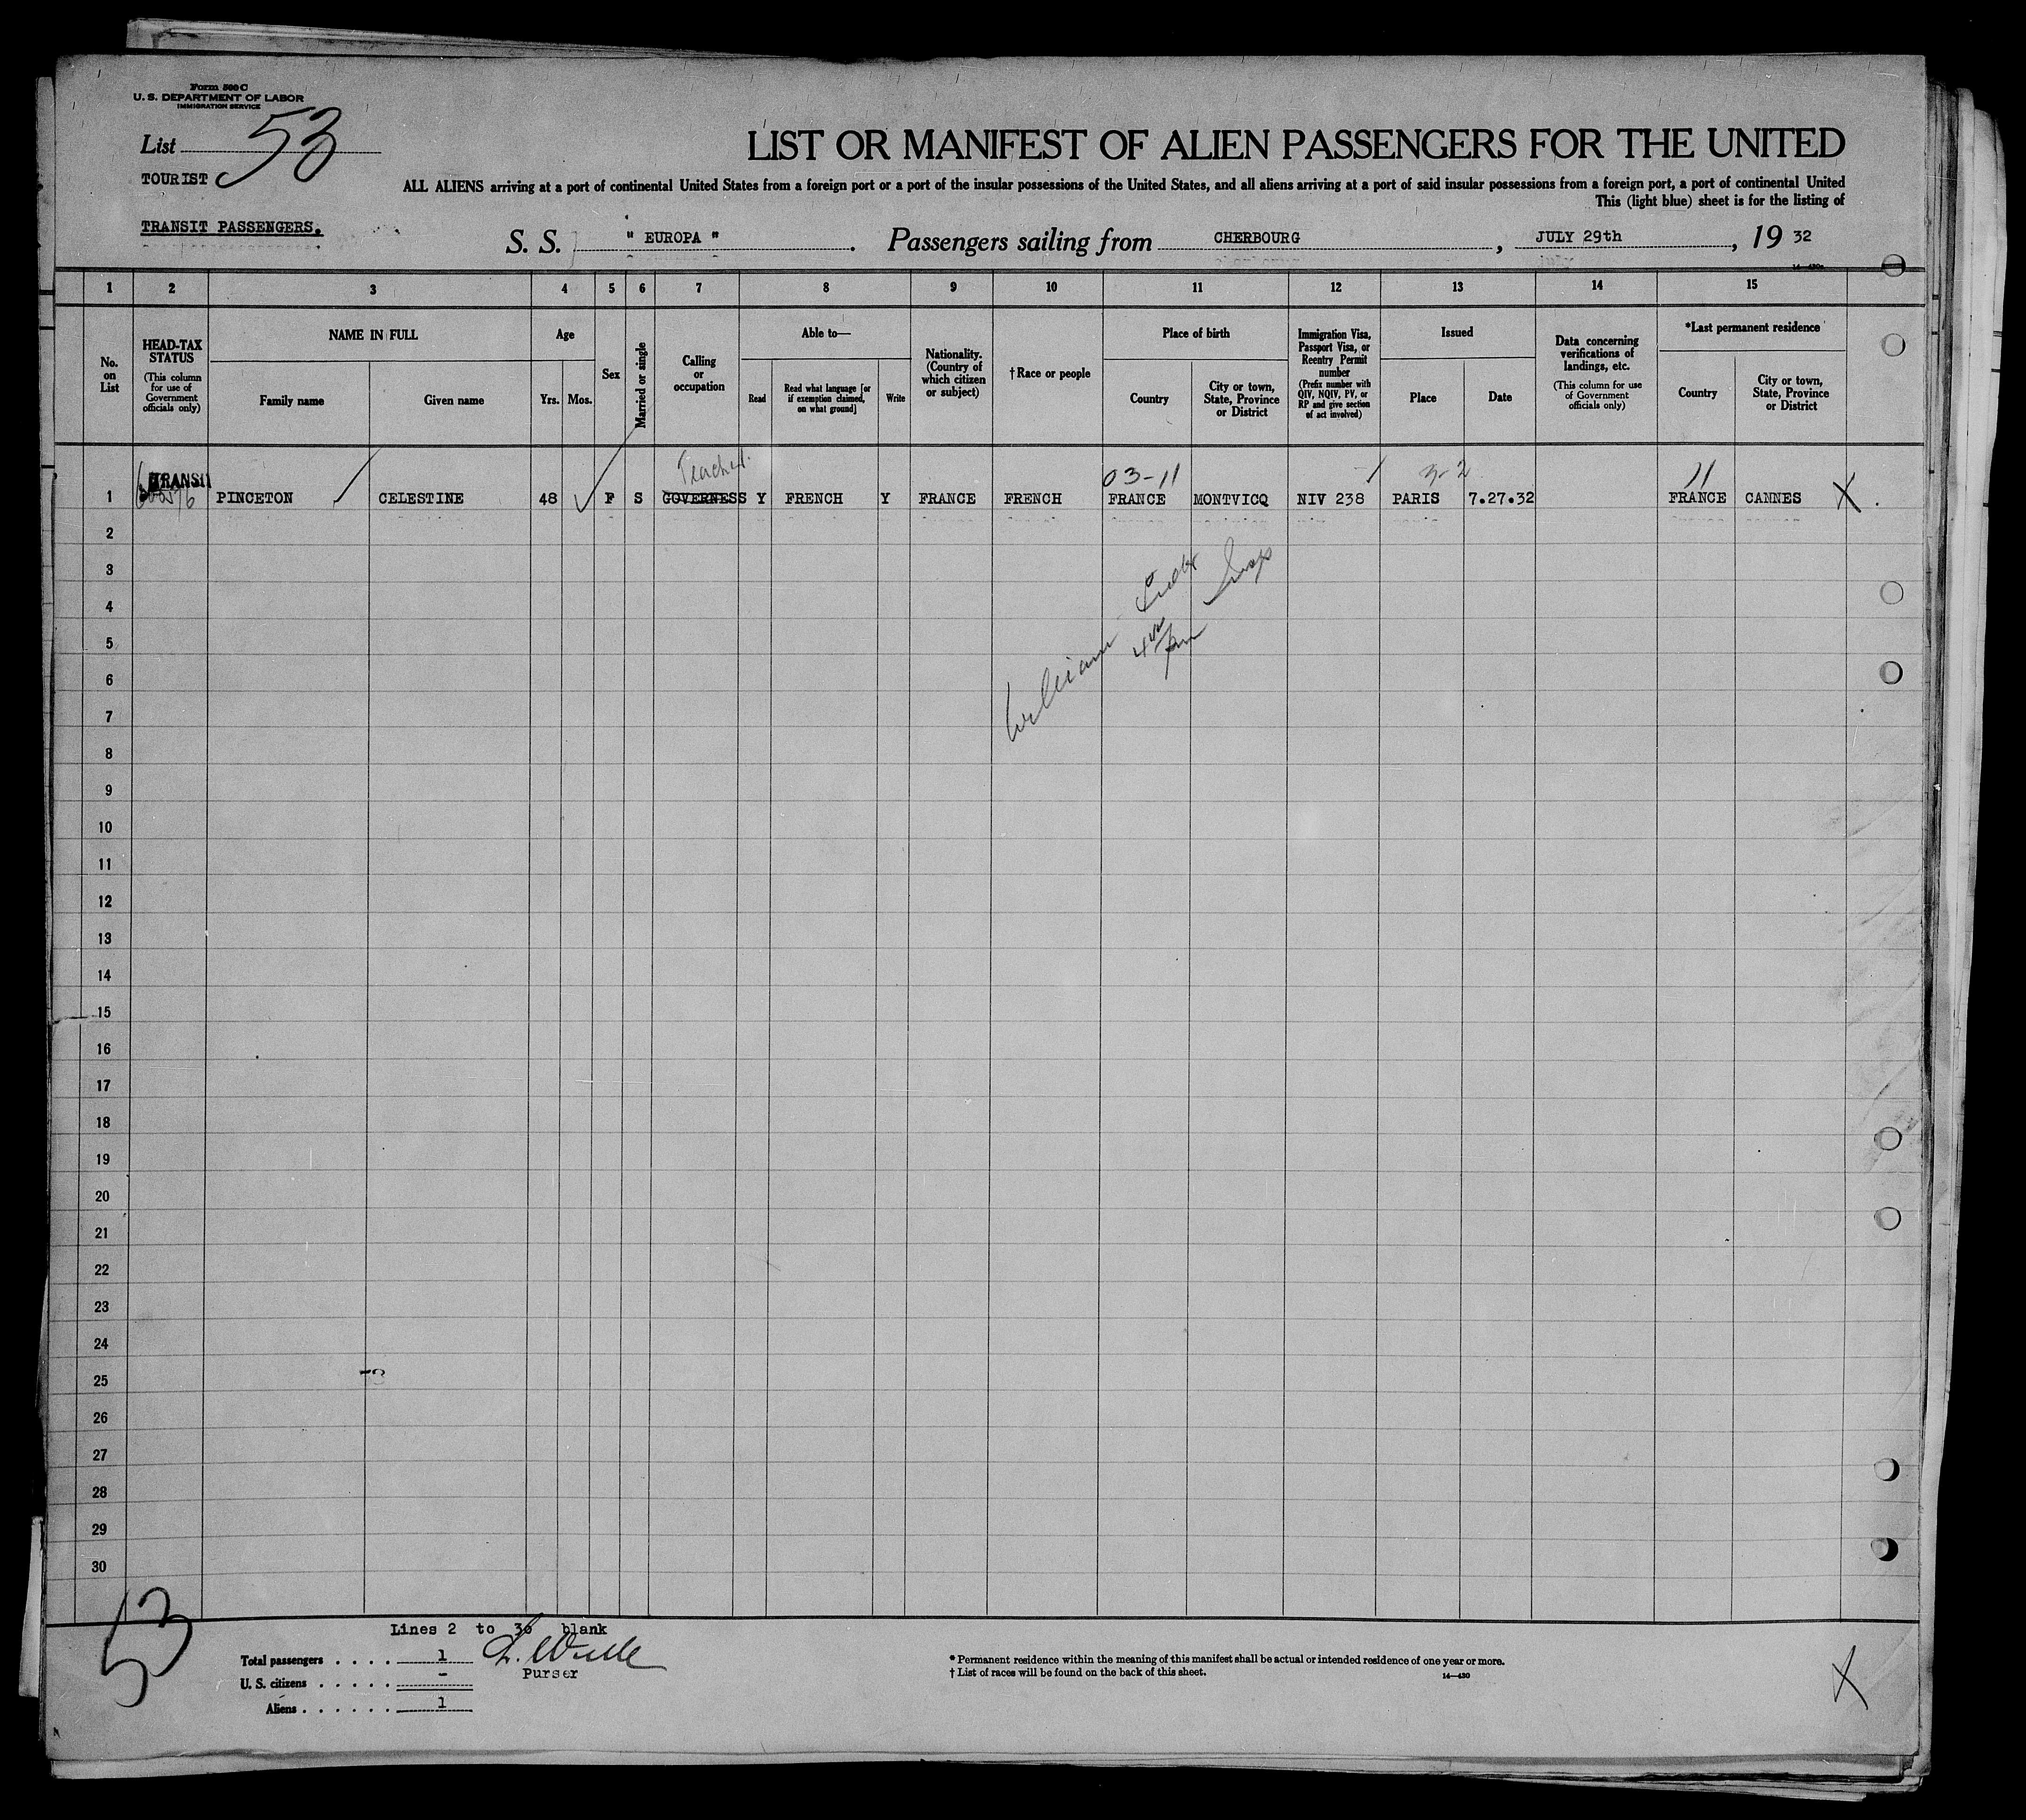 Form 500 C
U. S. DEPARTMENT OF LABOR
IMMIGRATION SERVICE
List 53
TOURIST
TRANSIT PASSENGERS.
LIST OR MANIFEST OF ALIEN PASSENGERS FOR THE UNITED
ALL ALIENS arriving at a port of continental United States from a foreign port or a port of the insular possessions of the United States, and all aliens arriving at a port of said insular possessions from a foreign port, a port of continental United
This (light blue) sheet is for the listing of
S. S. " EUROPA ". Passengers sailing from CHERBOURG, JULY 29th, 19 32
1 2 3 4 5 6 7 8 9 10 11 12 13 14 15
No. on List
HEAD-TAX STATUS
(This column for use of Government officials only)
NAME IN FULL
Family name
Given name
Age
Yrs.
Mos.
Sex
Married or single
Calling or occupation
Able to—
Read
Read what language [or if exemption claimed, on what ground]
Write
Nationality. (Country of which citizen or subject)
† Race or people
Place of birth
Country
City or town, State, Province or District
Immigration Visa, Passport Visa, or Reentry Permit number
(Prefix number with QIV, NQIV, PV, or RP and give section of act involved)
Issued
Place
Date
Data concerning verifications of landings, etc.
(This column for use of Government officials only)
*Last permanent residence
Country
City or town, State, Province or District
TRANSIT Teacher. 03-11 11
1 PINCETON CELESTINE 48 F S GOVERNESS Y FRENCH Y FRANCE FRENCH FRANCE MONTVICQ NIV 238 PARIS 7.27.32 FRANCE CANNES X
2
3
4
5
6
7
8
9
10
11
12
13
14
15
16
17
18
19
20
21
22
23
24
25
26
27
28
29
30
William
53
Lines 2 to 30 blank
Total passengers . . . . 1
Purser
U. S. citizens . . . . . -
Aliens . . . . . . 1
* Permanent residence within the meaning of this manifest shall be actual or intended residence of one year or more.
† List of races will be found on the back of this sheet.
14—430
X